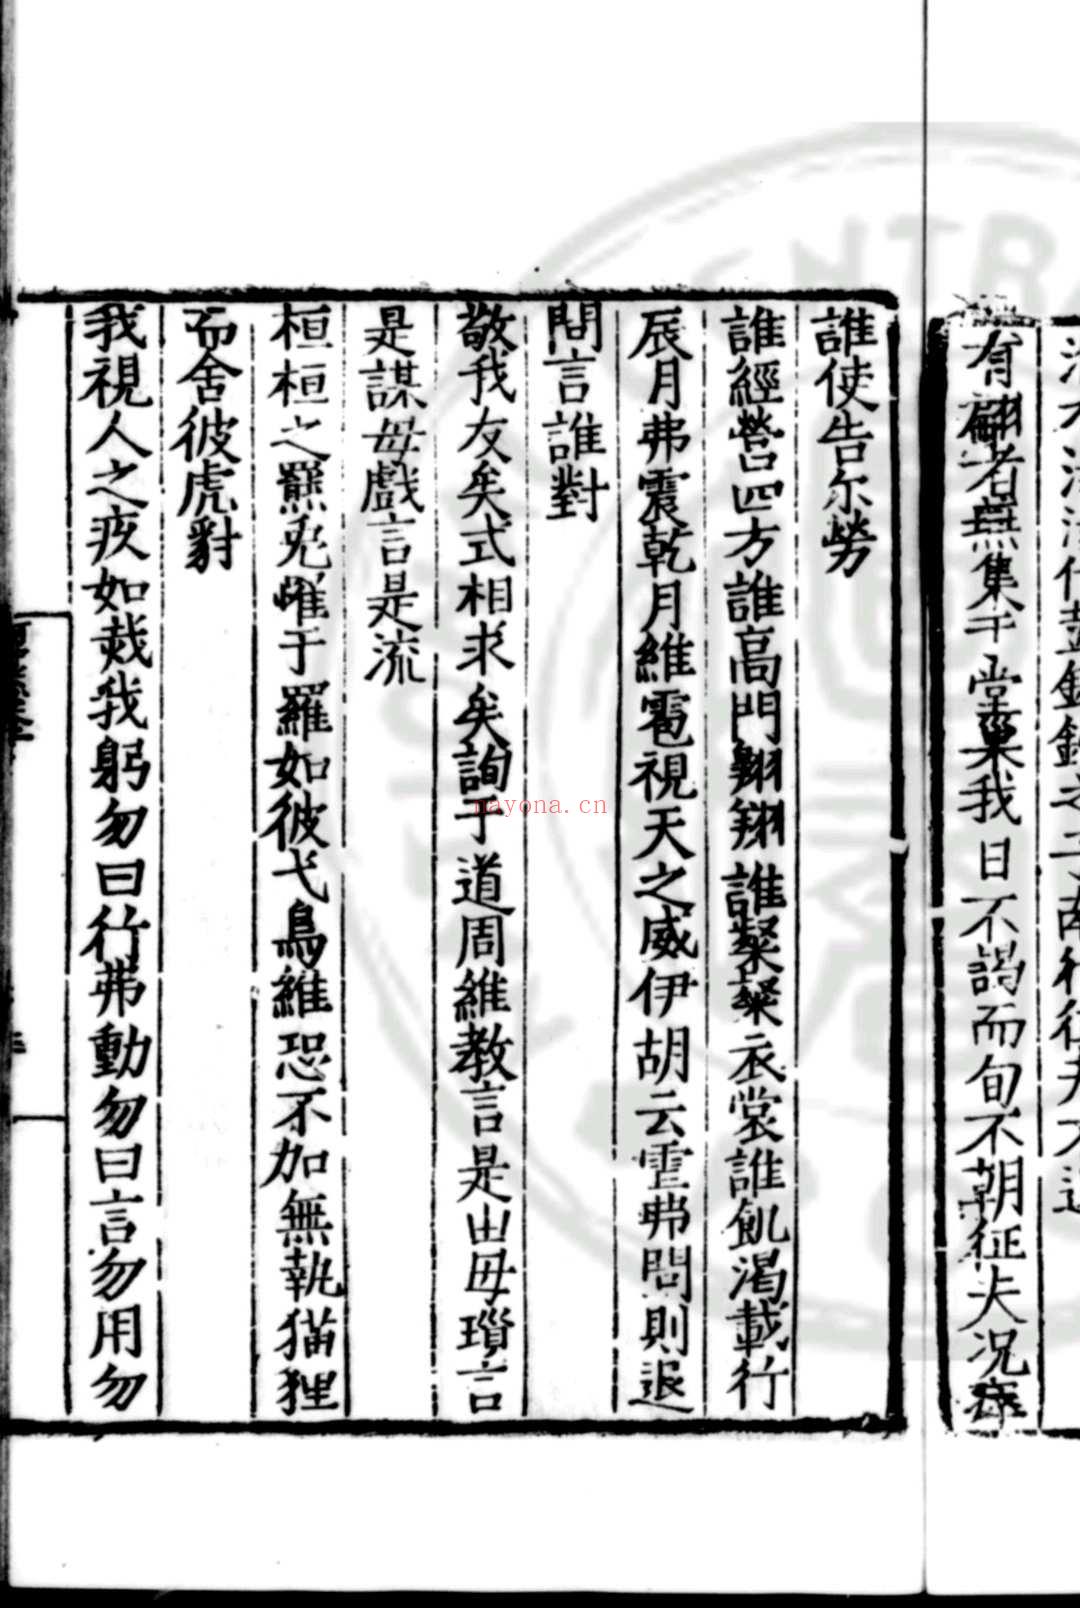 有翩者燕集于堂巢我日不謁而旬不朝征夫況瘁
誰使告尓勞
誰經營四方誰高門翔翔誰粲粲衣裳誰飢渴載行
辰月弗震乾月維雹視天之威伊胡云霍弗問則退
問言誰對
敬我友矣式相求矣詢于道周維教言是出毋瑣言
是謀毋戲言是流
桓桓之羆兎罹于羅如彼弋鳥維恐不加無執猫狸
而舍彼虎豺
我視人之疚如烖我躬勿曰行弗動勿曰言勿用勿
nayona.cn